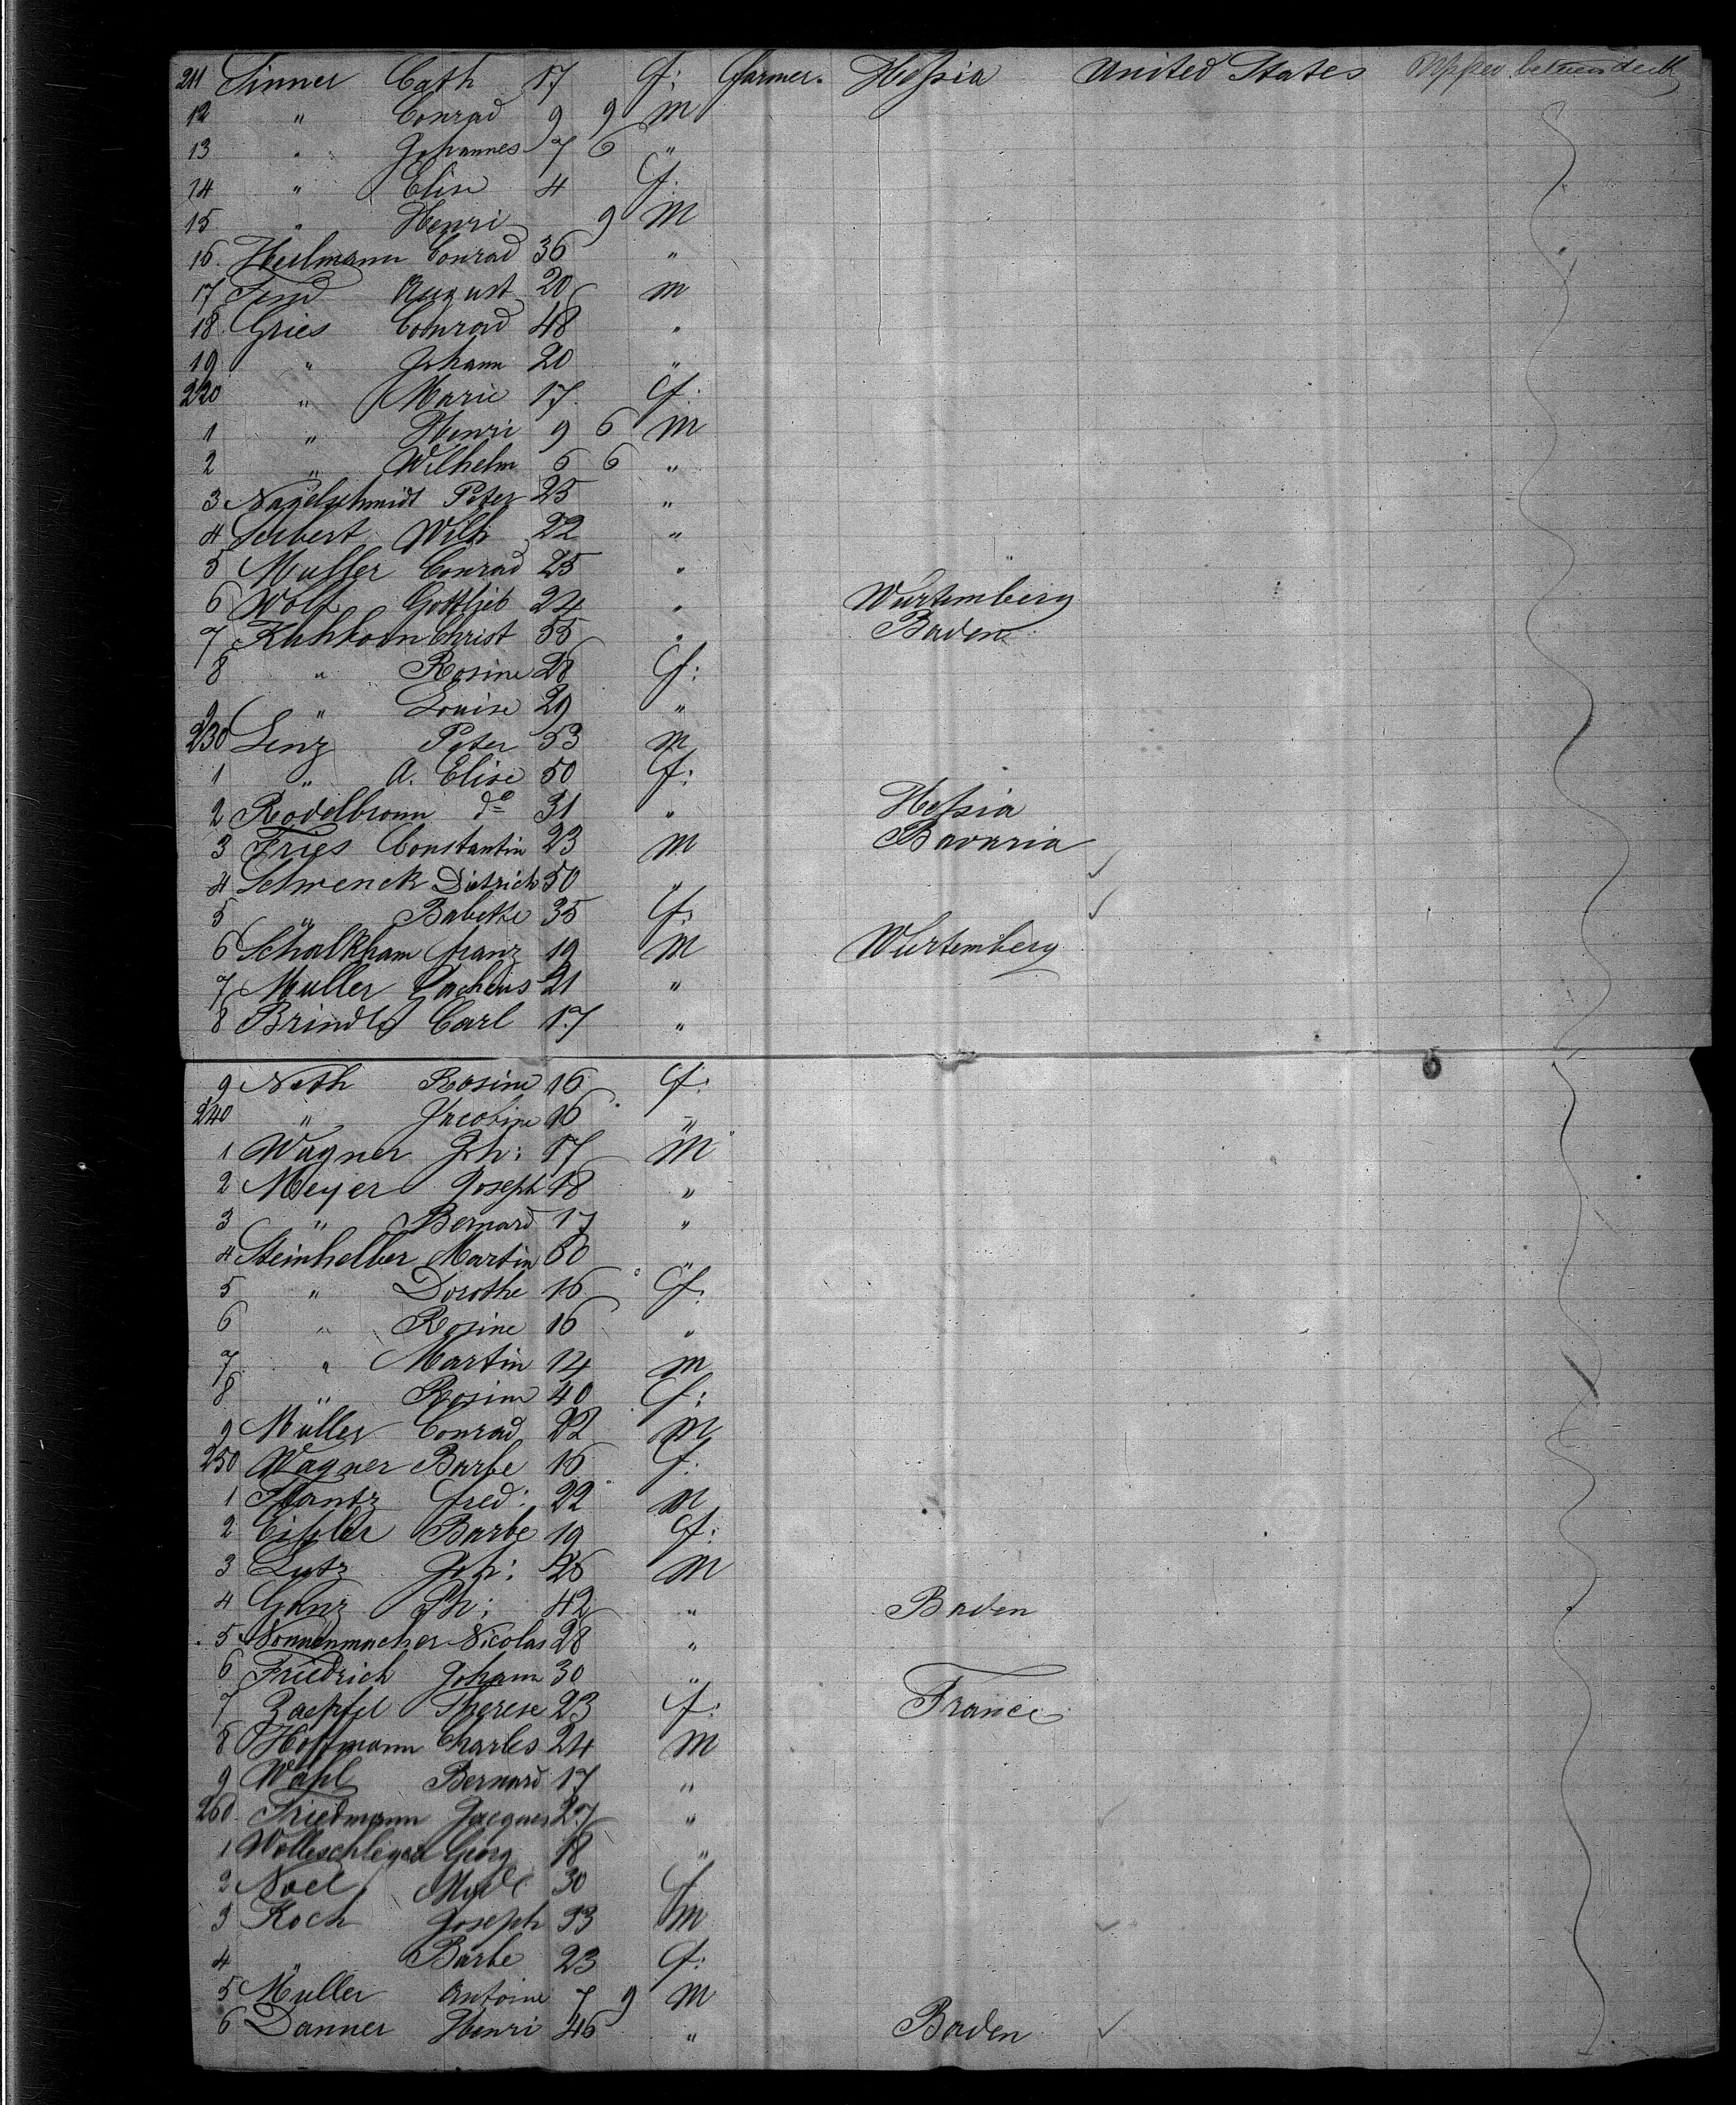 211 Sinner Cath 17 f: farmer. Hessia United States Upper betweendeck
12 " Conrad 9 9 m
13 " Johannes 7 6 "
14 " Elise 4 f:
15 " Henri 9 m
16. Heilmann Conrad 36 "
17 August 20 m
18 Gries Conrad 48 "
19 " Johann 20 "
220 " Marie 17. f:
1 " Henri 9 6 m
2 " Wilhelm 6 6 "
3 Nagelschmidt Peter 25 "
4 Seibert Wilh 22 "
5 Muller Conrad 25 "
6 Wolf Gottlieb 24 " Wurtemberg
7 Christ 55 " Baden
8 " Rosine 28 f:
9 " Louise 29 "
230 Lenz Peter 53 m
1 " A. Elise 50 f:
2 Rodelbronn do 31 " Hessia
3 Fries Constantin 23 m Bavaria
4 Schwenck Dietrich 50 "
5 " Babette 35 f:
6 Schalkham franz 19 m Wurtemberg
7 Muller 21 "
8 Brindle Carl 17 "
9 Neth Rosine 16 f:
240 " Jacobine 16 "
1 Wagner Joh: 17 m
2 Meyer Joseph 18 "
3 " Bernard 17 "
4 Steinhelber Martin 60 "
5 " Dorothe 16 f:
6 " Rosine 16 "
7 " Martin 14 m
8 " Rosine 40 f:
9 Muller Conrad 22 m
250 Wagner Barbe 16 f:
1 fred: 22 m
2 Barbe 19 f:
3 Lutz Joh: 26 m
4 Ganz Ph: 42 " Baden
5 Nonnenmacher Nicolas 28 "
6 Friedrich Johann 30 "
7 Zaepfel Therese 23 f: France
8 Hoffmann Charles 24 m
9 Wahl Bernard 17 "
260 Friedmann Jacques 27 "
1 Georg 18 "
2 Noel 30 f
3 Koch Joseph 33 m
4 " Barbe 23 f:
5 Muller Antoine 7 9 m
6 Danner Henri 46 " Baden